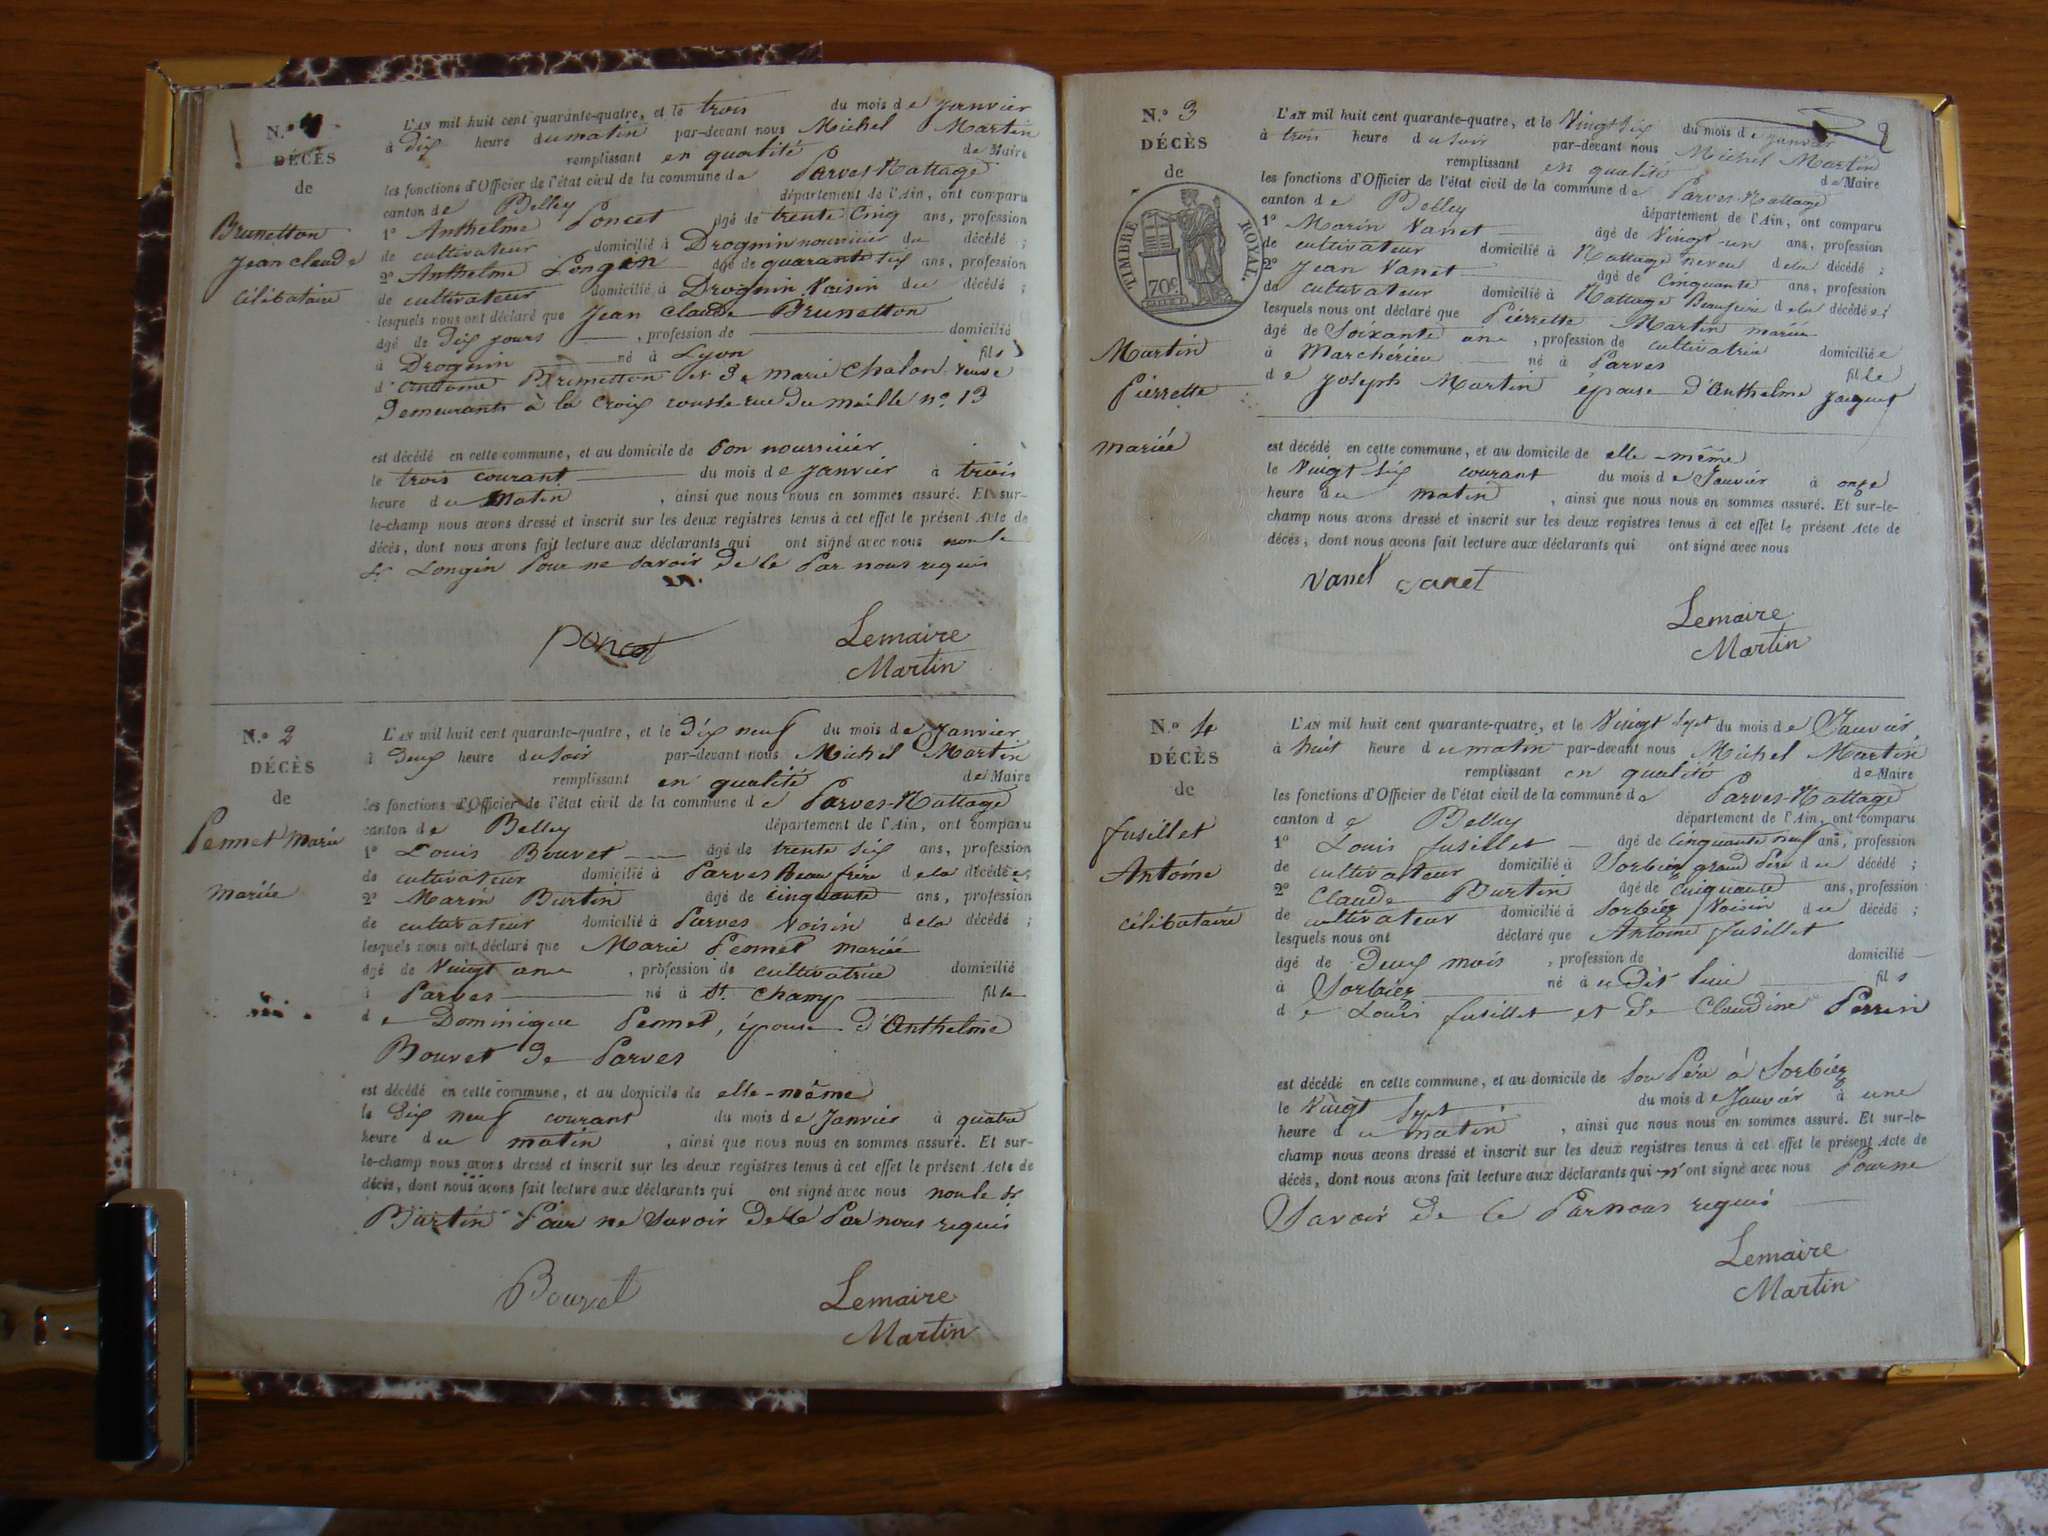 N.º 1
DÉCÈS
de
Brunetton
Jean Claude
Célibataire
L'AN mil huit cent quarante-quatre, et le trois du mois de Janvier
à Dix heure du matin par-devant nous Michel Martin
remplissant en qualité de Maire
les fonctions d'Officier de l'état civil de la commune de Parves-Nattage
canton de Belley département de l'Ain, ont comparu
1º Anthelme Poncet âgé de trente Cinq ans, profession
de cultivateur domicilié à Drognin nourricier du décédé ;
2º Anthelme Longin âgé de quarante six ans, profession
de cultivateur domicilié à Drognin Voisin du décédé ;
lesquels nous ont déclaré que Jean Claude Brunetton
âgé de Dix jours , profession de domicilié
à Drognin né à Lyon fils
d'Antoine Brunetton et De marie Chalon Veuve
Demeurants à la Croix rousse rue Du maille nº 13
est décédé en cette commune, et au domicile de Son nourricier
le trois courant du mois de Janvier à trois
heure du Matin , ainsi que nous nous en sommes assuré. Et sur-
le-champ nous avons dressé et inscrit sur les deux registres tenus à cet effet le présent Acte de
décès, dont nous avons fait lecture aux déclarants qui ont signé avec nous non le
Sr Longin Pour ne Savoir De Ce Par nous requis
Poncet
Lemaire
Martin
N.º 2
DÉCÈS
de
Pennet Marie
Mariée
L'AN mil huit cent quarante-quatre, et le Dix neuf du mois de Janvier
à Deux heure du Soir par-devant nous Michel Martin
remplissant en qualité de Maire
les fonctions d'Officier de l'état civil de la commune de Parves-Nattage
canton de Belley département de l'Ain, ont comparu
1º Louis Bouvet âgé de trente Six ans, profession
de cultivateur domicilié à Parves Beau frère de la décédée ;
2º Marin Burtin âgé de Cinquante ans, profession
de cultivateur domicilié à Parves Voisin de la décédé ;
lesquels nous ont déclaré que Marie Pennet mariée
âgé de Vingt ans , profession de cultivatrice domicilié
à Parves né à St. Champ fille
de Dominique Pennet, épouse d'Anthelme
Bouvet De Parves
est décédé en cette commune, et au domicile de elle-même
le Dix neuf courant du mois de Janvier à quatre
heure du matin , ainsi que nous nous en sommes assuré. Et sur-
le-champ nous avons dressé et inscrit sur les deux registres tenus à cet effet le présent Acte de
décès, dont nous avons fait lecture aux déclarants qui ont signé avec nous non le Sr
Burtin Pour ne Savoir De Ce Par nous requis
Bouvet
Lemaire
Martin
2
N.º 3
DÉCÈS
de
TIMBRE ROYAL.
70c
Martin
Pierrette
mariée
L'AN mil huit cent quarante-quatre, et le Vingt Six du mois de Janvier
à trois heure du Soir par-devant nous Michel Martin
remplissant en qualité de Maire
les fonctions d'Officier de l'état civil de la commune de Parves-Nattage
canton de Belley département de l'Ain, ont comparu
1º Marin Vanet âgé de Vingt-un ans, profession
de cultivateur domicilié à Nattage neveu de la décédé ;
2º Jean Vanet âgé de Cinquante ans, profession
de cultivateur domicilié à Nattage Beaufrère de la décédée ;
lesquels nous ont déclaré que Pierrette Martin mariée
âgé de Soixante ans , profession de cultivatrice domiciliée
à Marcherieu né à Parves fille
de Joseph Martin épouse d'Anthelme Jacquet
est décédé en cette commune, et au domicile de elle-même
le Vingt Six courant du mois de Janvier à onze
heure du matin , ainsi que nous nous en sommes assuré. Et sur-le-
champ nous avons dressé et inscrit sur les deux registres tenus à cet effet le présent Acte de
décès, dont nous avons fait lecture aux déclarants qui ont signé avec nous
Vanet Vanet
Lemaire
Martin
N.º 4
DÉCÈS
de
fusillet
Antoine
Célibataire
L'AN mil huit cent quarante-quatre, et le Vingt Sept du mois de Janvier
à huit heure du matin par-devant nous Michel Martin
remplissant en qualité de Maire
les fonctions d'Officier de l'état civil de la commune de Parves-Nattage
canton de Belley département de l'Ain, ont comparu
1º Louis fusillet âgé de Cinquante neuf ans, profession
de cultivateur domicilié à Sorbiez grand Père du décédé ;
2º Claude Burtin âgé de Cinquante ans, profession
de cultivateur domicilié à Sorbiez Voisin du décédé ;
lesquels nous ont déclaré que Antoine fusillet
âgé de Deux mois , profession de domicilié
à Sorbiez né à u Dit lieu fils
de Louis fusillet et De Claudine Perrin
est décédé en cette commune, et au domicile de Son Père à Sorbiez
le Vingt Sept du mois de Janvier à une
heure du matin , ainsi que nous nous en sommes assuré. Et sur-le-
champ nous avons dressé et inscrit sur les deux registres tenus à cet effet le présent Acte de
décès, dont nous avons fait lecture aux déclarants qui n'ont signé avec nous Pour ne
Savoir De Ce Par nous requis
Lemaire
Martin